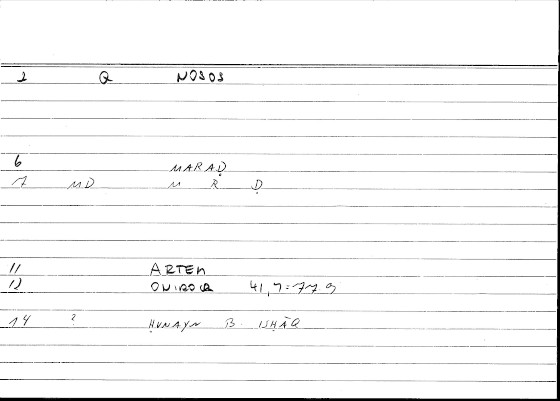 2 Q NOSOS
6 MARAḌ
7 MD M R Ḍ
11 ARTEM
12 ONIROCR 41,7 = 77 9
14 ? ḤUNAYN B. ISḤĀQ